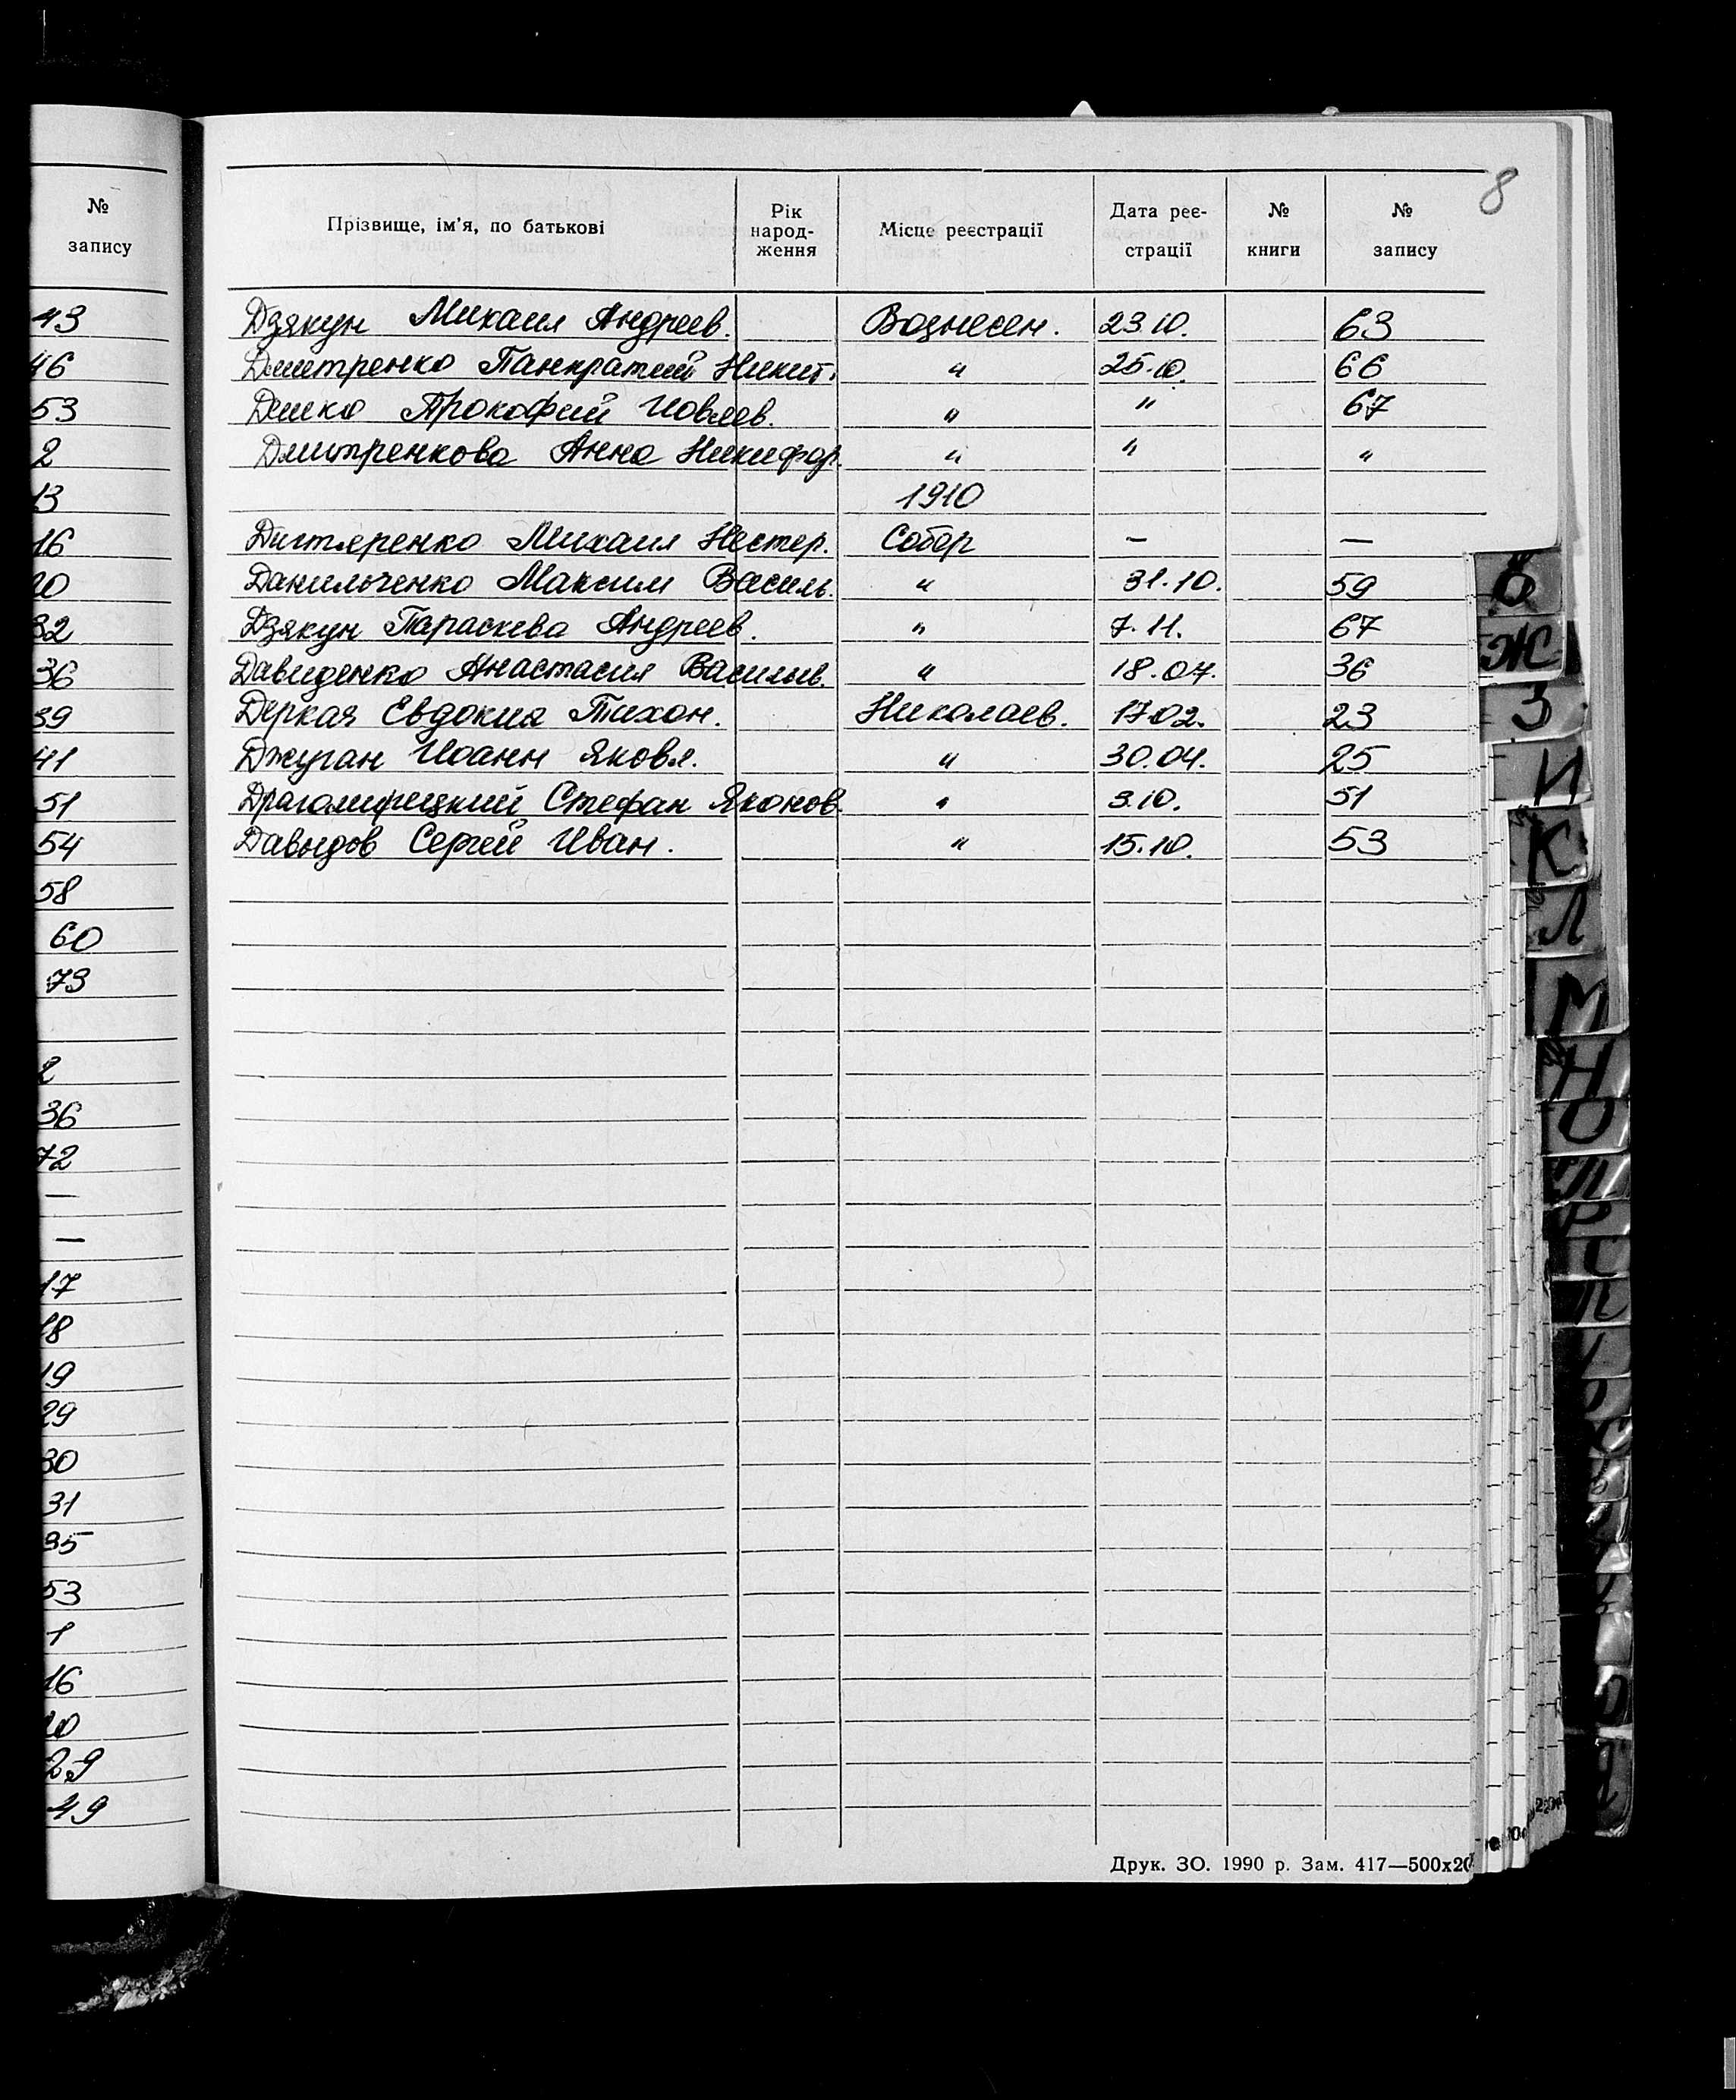 №
запису
43
46
53
2
13
16
20
32
36
39
41
51
54
58
60
73
2
36
72
—
—
17
18
19
29
30
31
35
53
1
16
20
29
49
8
Прізвище, ім'я, по батькові | Рік народ-ження | Місце реєстрації | Дата реє-страції | № книги | № запису
Дзякун Михаил Андреев. Вознесен. 23.10. 63
Дмитренко Панкратий Никит. " 25.10. 66
Демко Прокофий Иовлев. " " 67
Дмитренкова Анна Никифор. " " "
1910
Михаил Нестер. Собор — —
Данильченко Максим Василь. " 31.10. 59
Дзякун Параскева Андреев. " 7.11. 67
Давиденко Анастасия Васильев. " 18.07. 36
Деркая Евдокия Тихон. Николаев. 17.02. 23
Джуган Иоанн Яковл. " 30.04. 25
Стефан " 3.10. 51
Давыдов Сергей Иван. " 15.10. 53
Друк. ЗО. 1990 р. Зам. 417—500х20
Ж
З
И
К
Л
М
Н
О
П
Р
С